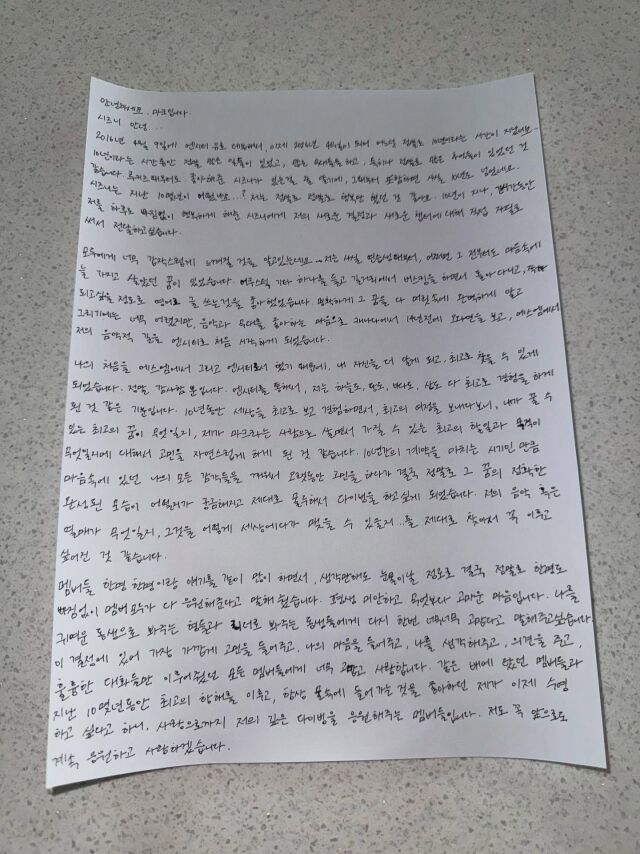 안녕하세요. 마크입니다.
시즈니 안녕....
2016년 4월 9일에 엔시티 유로 데뷔해서, 이제 2026년 4월이 되어 어느덧 정말로 10년이라는 시간이 지났네요..
10년이라는 시간동안 정말 많은 일들이 있었고, 많은 무대들을 하고, 특히나 정말로 많은 추억들이 있었던 것
같습니다. 루키즈때부터도 좋아해준 시즈니가 있는걸 잘 알기에, 그때부터 포함하면 사실 10년도 넘었네요.
시즈니는 지난 10몇년이 어땠나요...? 저는 정말로 정말로 행복만 했던 것 같아요. 10년이 지나, 동안
저를 하루도 빠짐없이 행복하게 해준 시즈니에게 저의 새로운 결정과 새로운 챕터에 대해 직접 자필로
써서 전달하고싶습니다.
모두에게 너무 갑작스럽게 느껴질 것을 알고있는데요.. 저는 사실 연습생때부터, 어쩌면 그 전부터도 마음속에
늘 가지고 살았던 꿈이 있었습니다. 어쿠스틱 기타 하나를 들고 길거리에서 버스킹을 하면서 돌아 다니고, 작가
되고싶을 정도로 영어로 글 쓰는것을 좋아했었습니다. 명확하게 그 꿈을 다 머릿속에 완벽하게 알고
그리기에는 너무 어렸지만, 음악과 무대를 좋아하는 마음으로 캐나다에서 14년전에 오디션을 보고, 에스엠에서
저의 음악적 길을 엔시티로 처음 시작하게 되었습니다.
나의 처음을 에스엠에서 그리고 엔시티로서 했기 때문에, 내 자신을 더 알게 되고, 최고로 찾을 수 있게
되었습니다. 정말 감사할 뿐입니다. 엔시티를 통해서, 저는 하늘도, 땅도, 바다도, 산도 다 최고로 경험을 하게
된 것 같은 기분입니다. 10년동안 세상을 최고로 보고 경험하면서, 최고의 여정을 보내다보니, 내가 꿀 수
있는 최고의 꿈이 무엇일지, 제가 마크라는 사람으로 살면서 가질 수 있는 최고의 할일과 목적이
무엇일지에 대해서 고민을 자연스럽게 하게 된 것 같습니다. 10년간의 계약을 마치는 시기인 만큼
마음속에 있던 나의 모든 감각들을 오랫동안 고민을 하다가 결국 정말로 그 꿈의 정확한
완성된 모습이 어떨지가 궁금해지고 제대로 몰두해서 다이빙을 하고싶게 되었습니다. 저의 음악 혹은
열매가 무엇일지, 그것을 어떻게 세상에다가 맺을 수 있을지...를 제대로 찾아서 꼭 이루고
싶어진 것 같습니다.
멤버들 한명 한명이랑 얘기를 같이 많이 하면서, 생각만해도 눈물이날 정도로 결국 정말로 한명도
빠짐없이 멤버 모두가 다 응원해준다고 말해 줬습니다. 평생 미안하고 무엇보다 고마운 마음입니다. 나를
귀여운 동생으로 봐주는 형들과 리더로 봐주는 동생들에게 다시 한번 너무너무 고맙다고 말해주고싶습니다.
이 결정에 있어 가장 가깝게 고민을 들어주고, 나의 마음을 들어주고, 나를 생각해주고, 의견을 주고,
훌륭한 대화들만 이루어줬던 모든 멤버들에게 너무 고맙고 사랑합니다. 같은 배에 탔던 멤버들과
지난 10몇년동안 최고의 항해를 이루고, 항상 물속에 들어가는 것을 좋아하던 제가 이제 수영
하고 싶다고 하니, 사랑으로까지 저의 깊은 다이빙을 응원해주는 멤버들입니다. 저도 꼭 앞으로도
계속 응원하고 사랑하겠습니다.